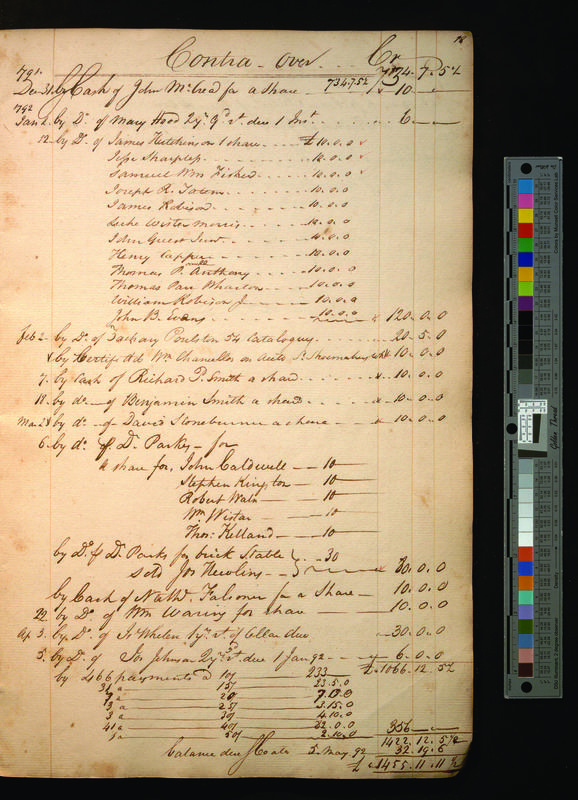 Contra - Over ... Cr
791.
Dec 31. By Cash of John McCrea for a Share 734.7.5½ 10 —
792
Jan 2 by Do. of Mary Hood 2 yr. gd. rt. due 1 Inst. 6 —
12 by Do. of James Hutchins on 1 share £10.0.0
Jesse Sharpless 10.0.0
Samuel Wm Fisher 10.0.0
Joseph R. 10.0.0
James Robison 10.0.0
Luke Wister Morris 10.0.0
John Guest Junr 10.0.0
Henry 10.0.0
Thomas P. Anthony 10.0.0
Thomas Parr Wharton 10.0.0
William Robison Jr 10.0.0
John B. Evans 10.0.0 120.0.0
Feb 2 by Do. of Zachary Poulson 54 Catalogues 20.5.0
by Certif. Wm Chancellor on 10.0.0
7. by Cash of Richard P. Smith a share 10.0.0
18 by do. of Benjamin Smith a share 10.0.0
Mar 2 by do. of David Stoneburner a share 10.0.0
6 by do. of D. Parks for
a share for, John Caldwell — 10
Stephen Kington — 10
Robert Waln — 10
Wm. Wistar — 10
Thos: Kelland — 10
by Do. of D. Parks for brick Stable
sold Jos Newlins 30 80.0.0
by Cash of Nathl. Falconer for a Share 10.0.0
22 by Do. of Wm Waring for share 10.0.0
Ap 3. by Do. of Is. Whelen 1 yr. rt. of Cellar due 30.0.0
5. by Do. of Jos Johnson 2 yr rt. due 1 Jan 92 6.0.0
£ 1066.12.5½
by 466 payments a 10/ 233
31 a 15/ 23.5.0
7 a 20/ 7.0.0
3 a 25/ 3.15.0
3 a 30/ 4.10.0
41 a 40/ 82.0.0
1 a 50/ 2.10.0 356 —
1422.12.5½
balance due J Coats 5 May 92 32.19.6
£ 1455.11.11½